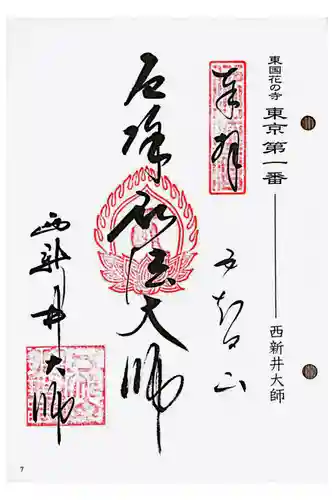 東国花の寺 東京第一番 西新井大師
奉拝
五智山
厄除弘法大師
西新井大師
7